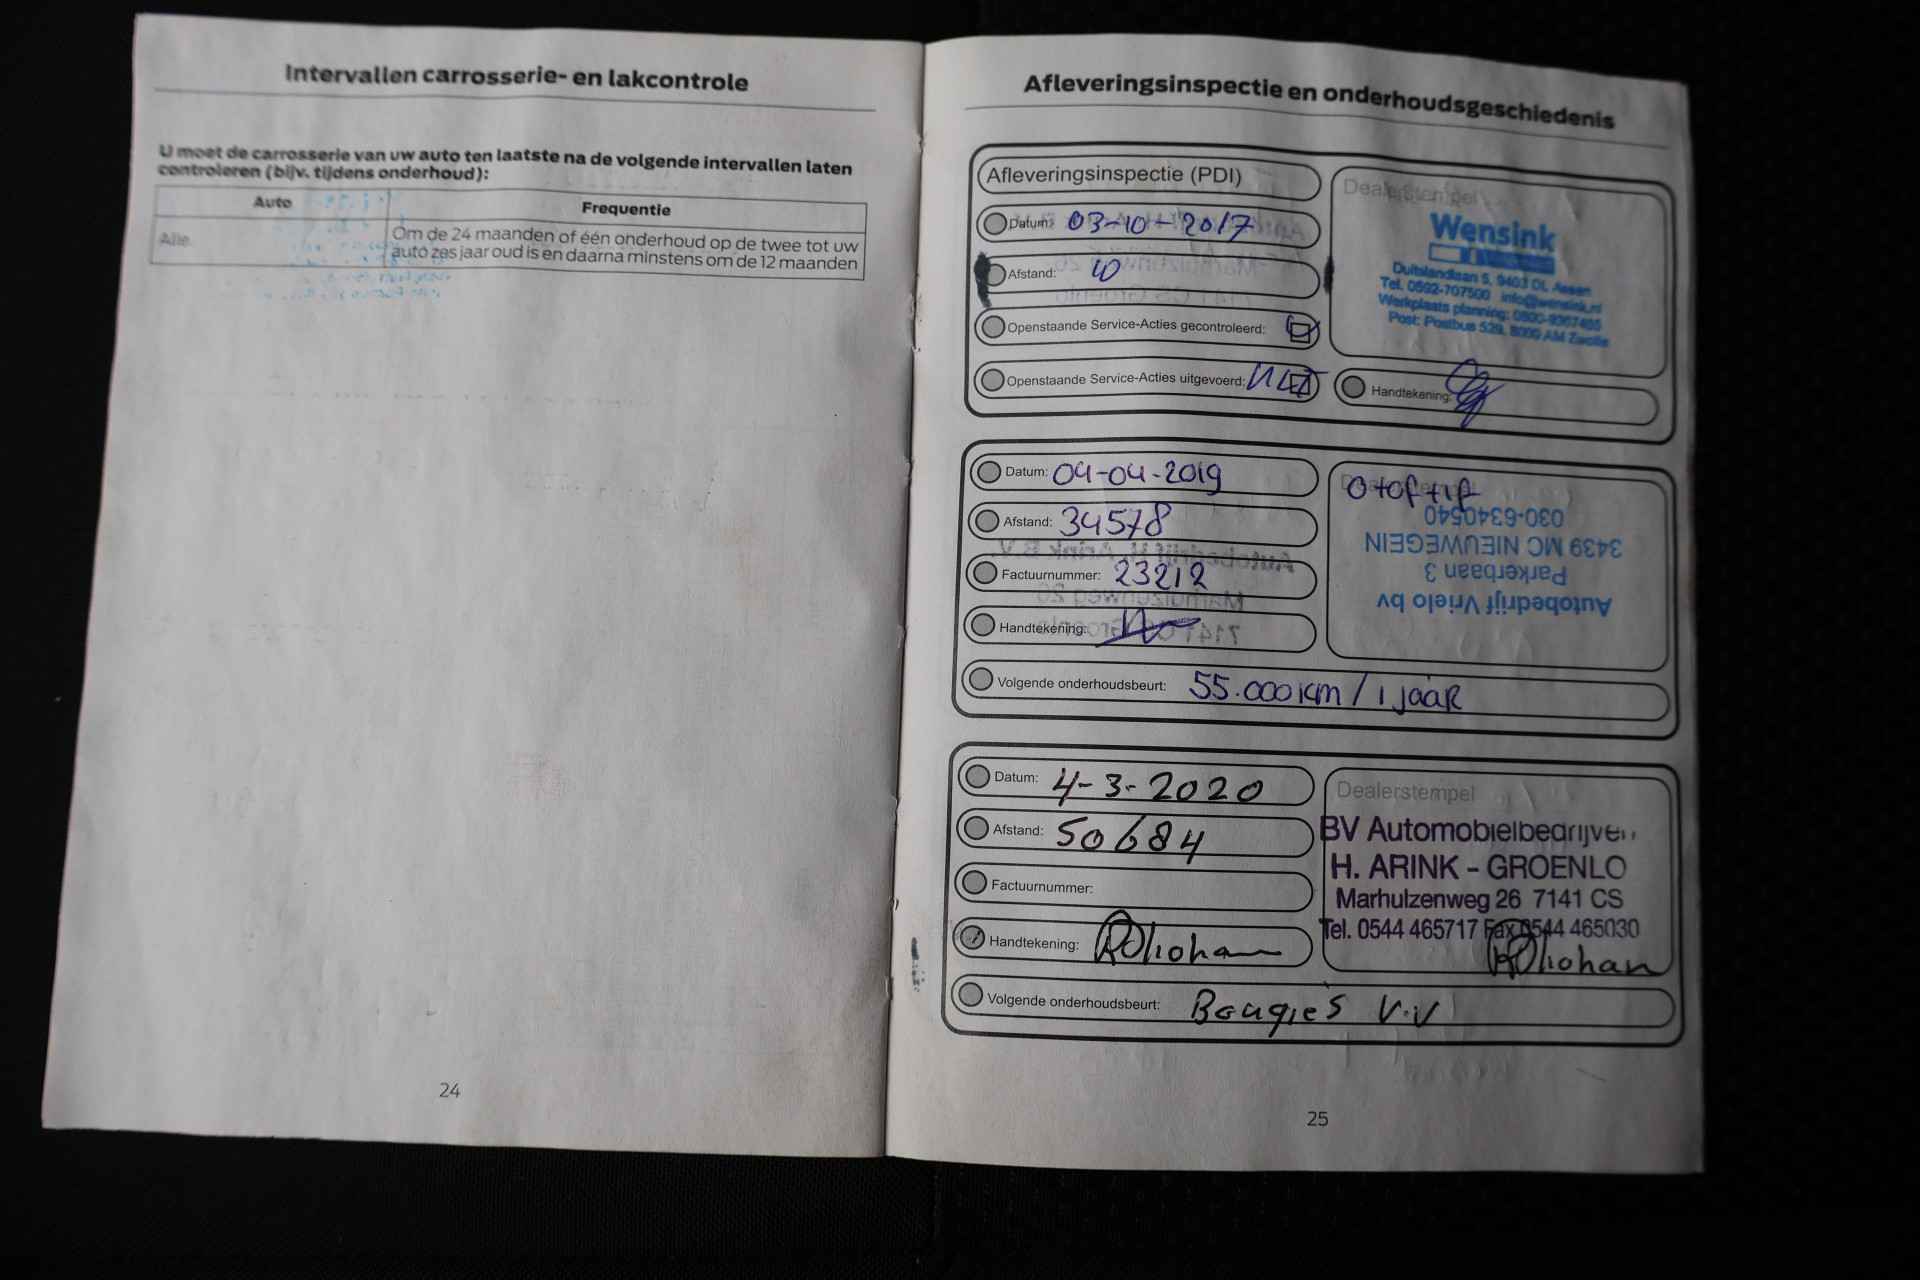 Intervallen carrosserie- en lakcontrole
U moet de carrosserie van uw auto ten laatste na de volgende intervallen laten
controleren (bijv. tijdens onderhoud):
Auto
Frequentie
Alle
Om de 24 maanden of één onderhoud op de twee tot uw
auto zes jaar oud is en daarna minstens om de 12 maanden
24
Afleveringsinspectie en onderhoudsgeschiedenis
Afleveringsinspectie (PDI)
Datum: 03-10-2017
Afstand: 10
Openstaande Service-Acties gecontroleerd:
Openstaande Service-Acties uitgevoerd:
Dealerstempel
Wensink
Duitslandlaan 5, 9403 DL Assen
Tel. 0592-707500 info@wensink.nl
Werkplaats planning: 0800-9367465
Post: Postbus 529, 8000 AM Zwolle
Handtekening:
Datum: 04-04-2019
Afstand: 34578
Factuurnummer: 23212
Handtekening:
Volgende onderhoudsbeurt: 55.000 km / 1 jaar
Dealerstempel
Autobedrijf Vrielo bv
Parkerbaan 3
3439 MC NIEUWEGEIN
030-6340540
Datum: 4-3-2020
Afstand: 50684
Factuurnummer:
Handtekening:
Volgende onderhoudsbeurt: Bougie's V.V
Dealerstempel
BV Automobielbedrijven
H. ARINK - GROENLO
Marhulzenweg 26 7141 CS
Tel. 0544 465717 Fax 0544 465030
25